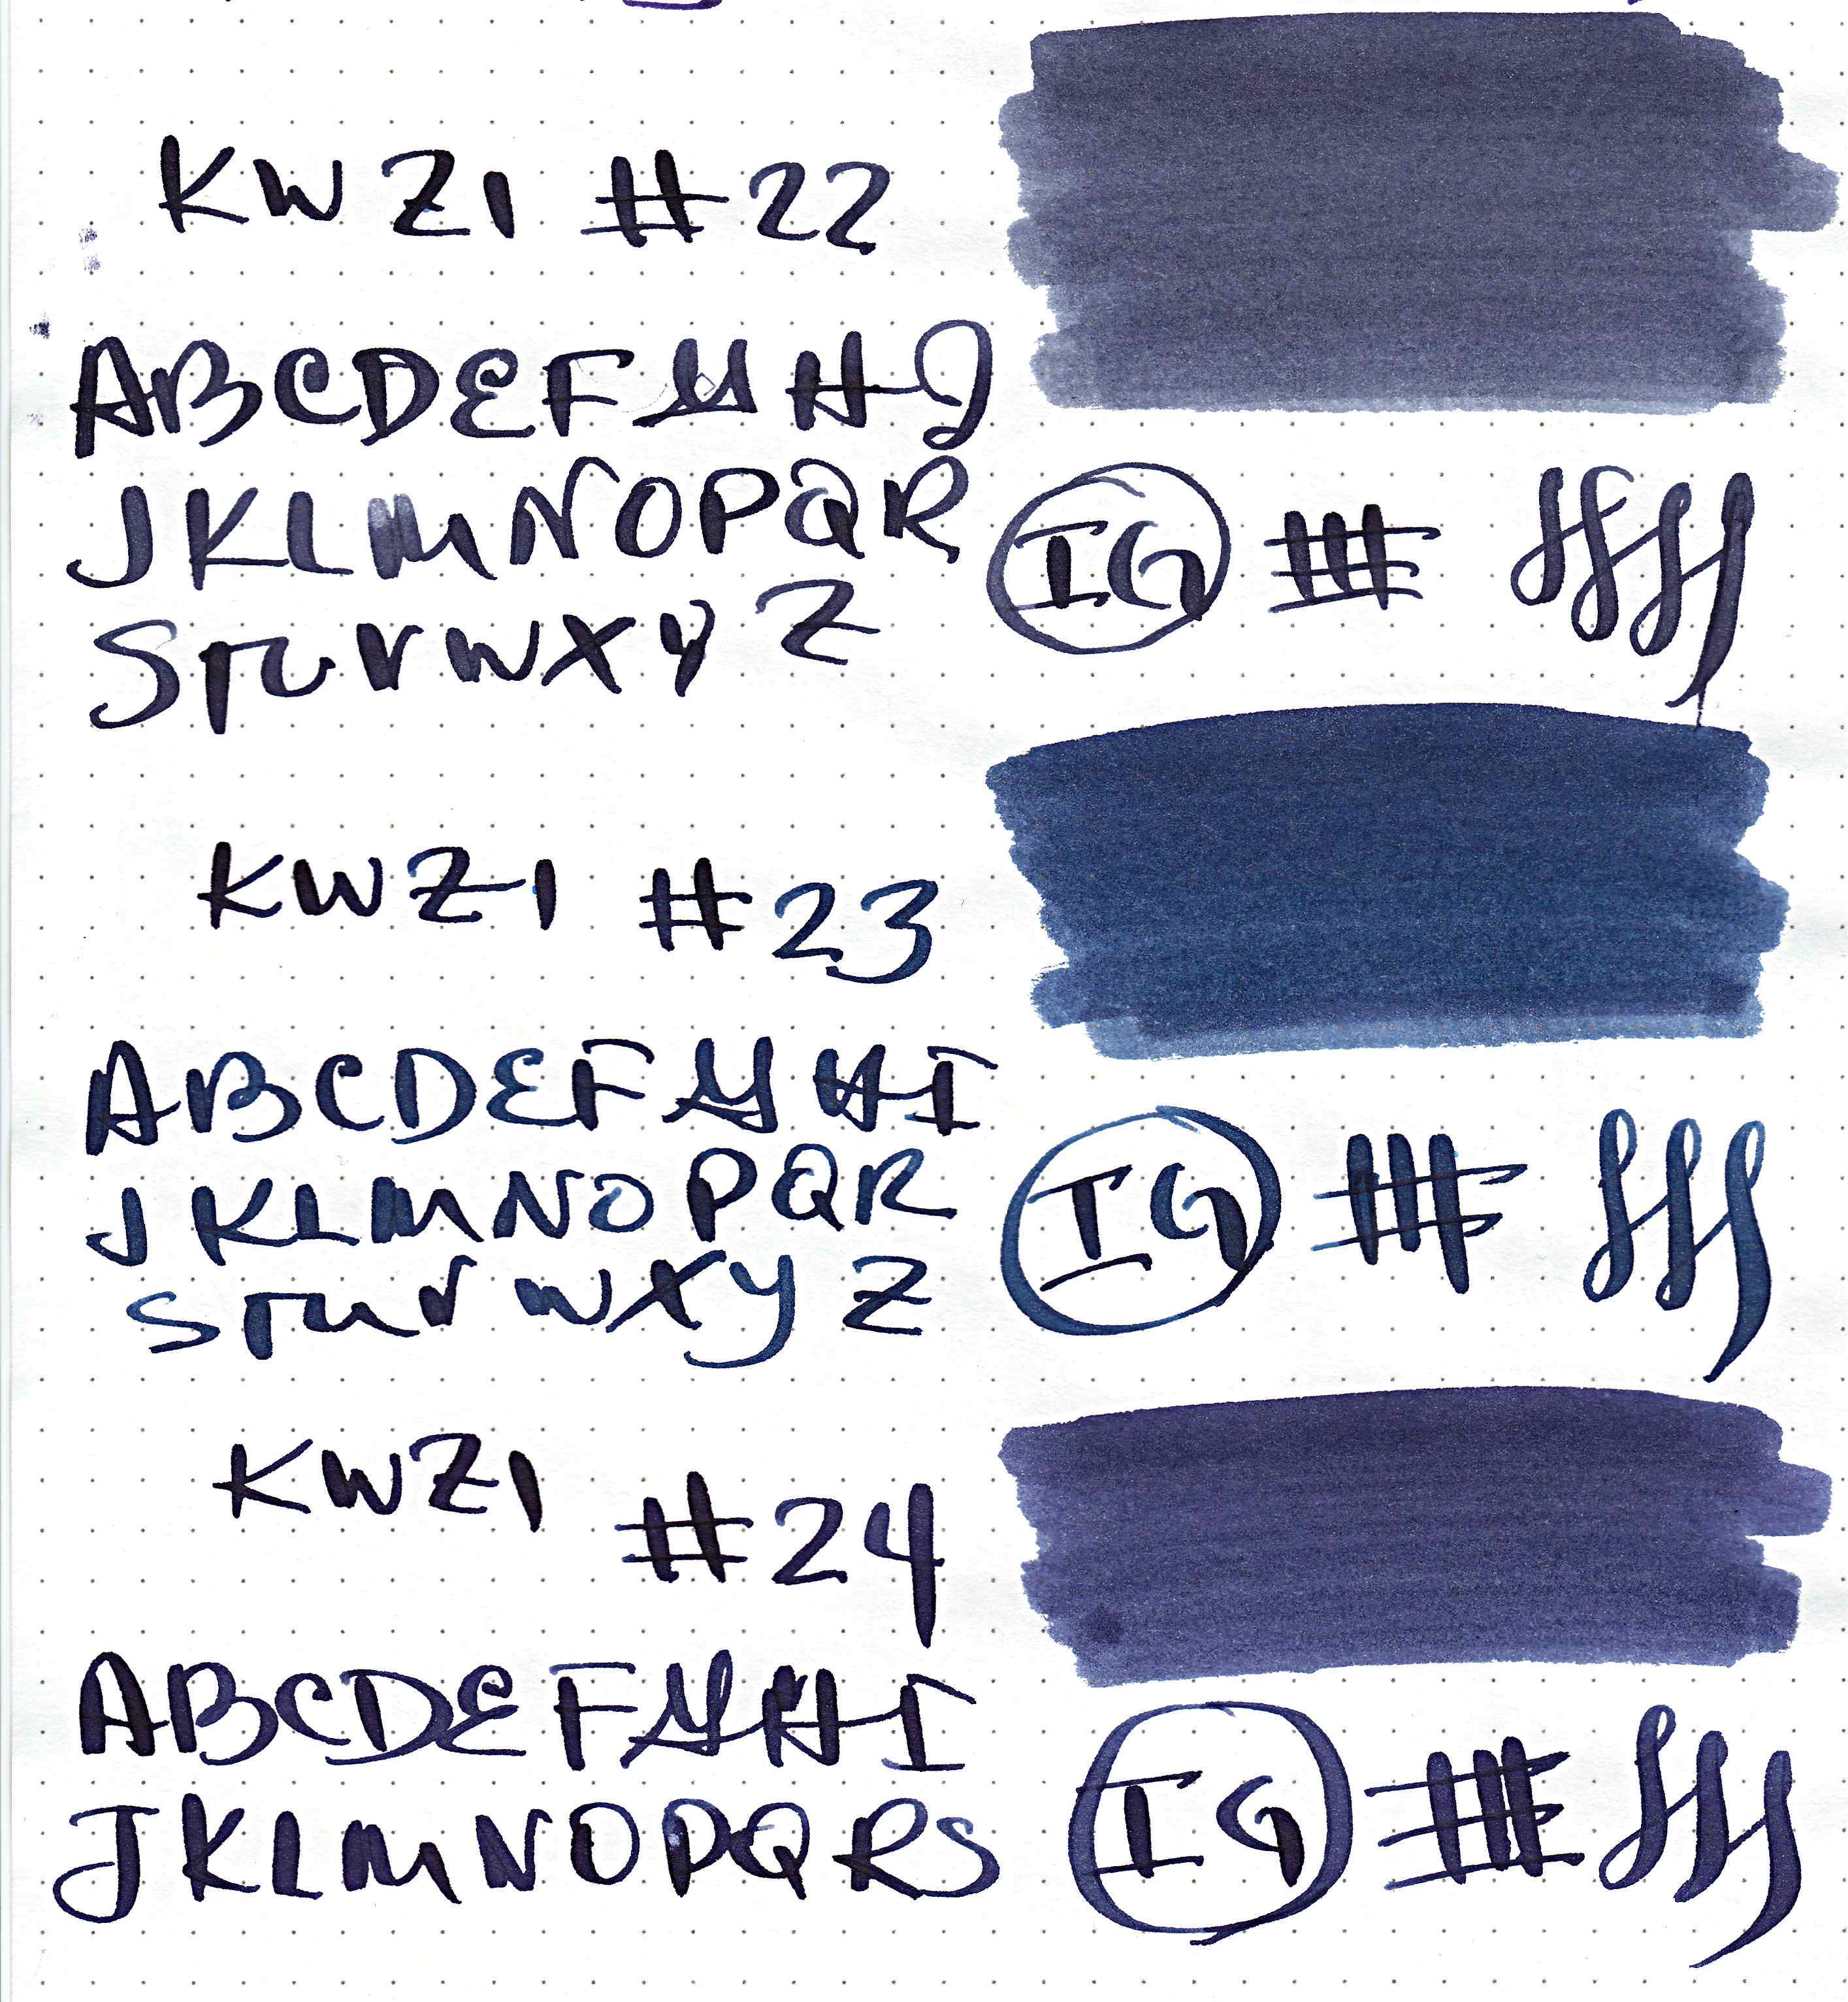 KWZI #22
ABCDEFGHI
JKLMNOPQR
STUVWXYZ
IG
KWZI #23
ABCDEFGHI
JKLMNOPQR
STUVWXYZ
IG
KWZI #24
ABCDEFGHI
JKLMNOPQRS
IG